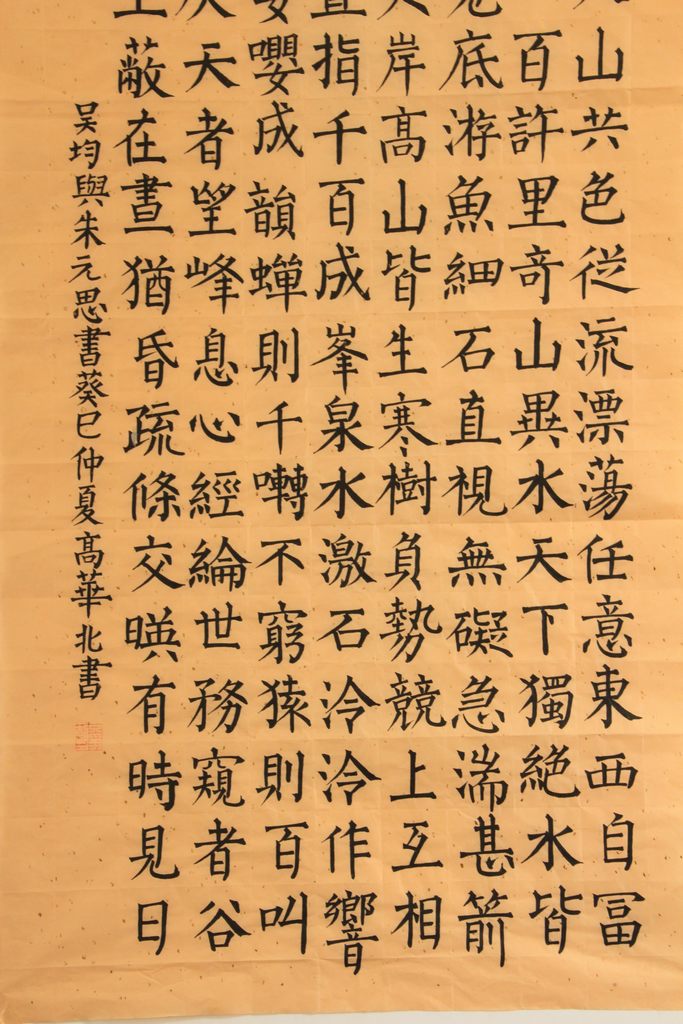 山共色從流漂蕩任意東西自冨
百許里奇山異水天下獨絶水皆
底游魚細石直視無礙急湍甚箭
岸髙山皆生寒樹負勢競上互相
指千百成峯泉水激石泠泠作響
嚶成韻蟬則千囀不窮猿則百叫
天者望峰息心經綸世務窺者谷
蔽在晝猶昏疏條交暎有時見日
吴均與朱元思書葵巳仲夏髙華北書